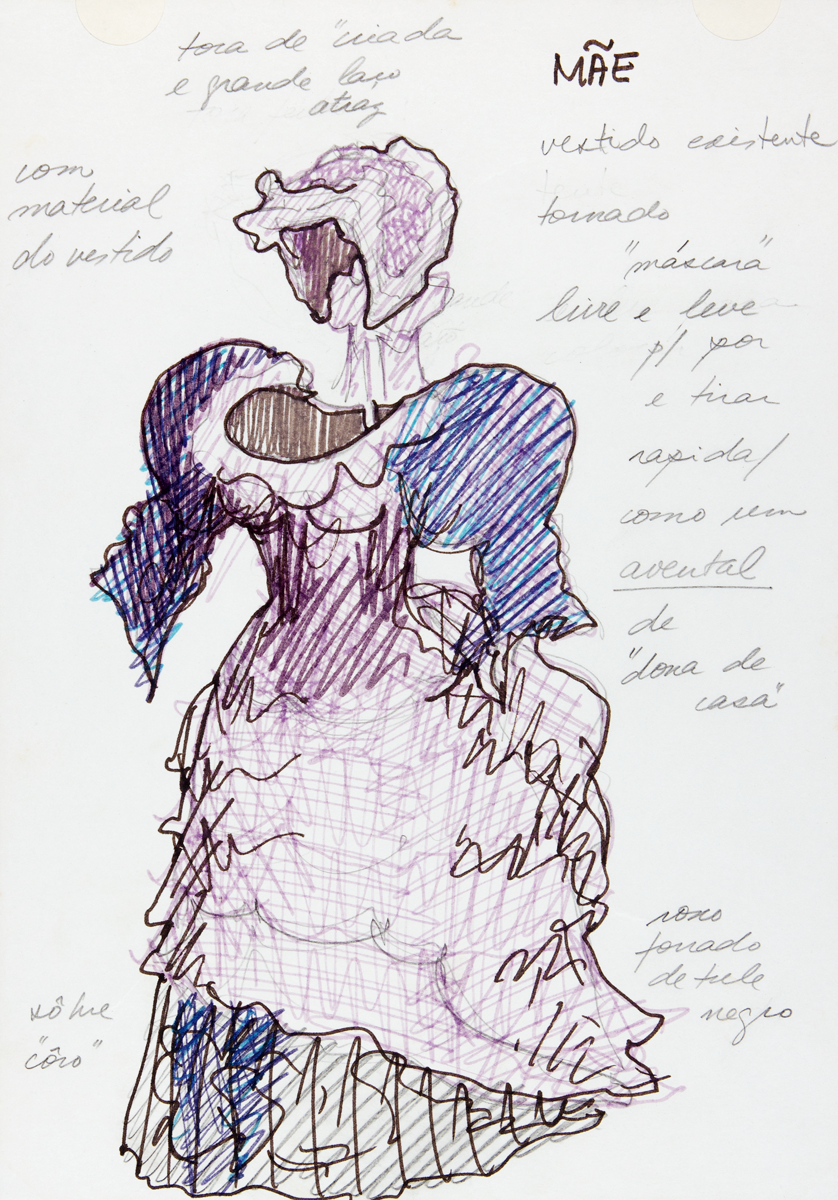 toca de "criada
e grande laço
atraz
MÃE
com
material
do vestido
vestido existente
tornado
"máscara"
livre e leve
p/ por
e tirar
rapida/
como um
avental
de
"dona de
casa"
roxo
forrado
de tule
negro
sôbre
"côro"